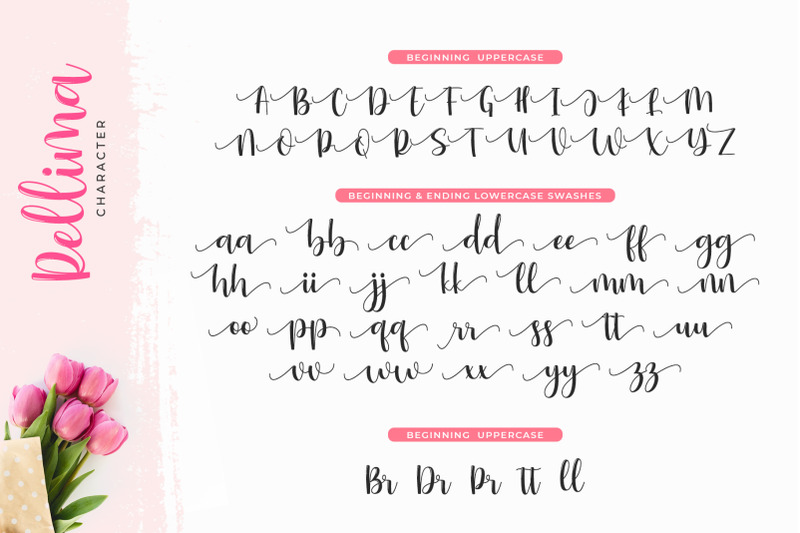 Pellima
CHARACTER
BEGINNING UPPERCASE
A B C D E F G H I J K L M
N O P Q R S T U V W X Y Z
BEGINNING & ENDING LOWERCASE SWASHES
aa bb cc dd ee ff gg
hh ii jj kk ll mm nn
oo pp qq rr ss tt uu
vv ww xx yy zz
BEGINNING UPPERCASE
Br Dr Pr tt ll